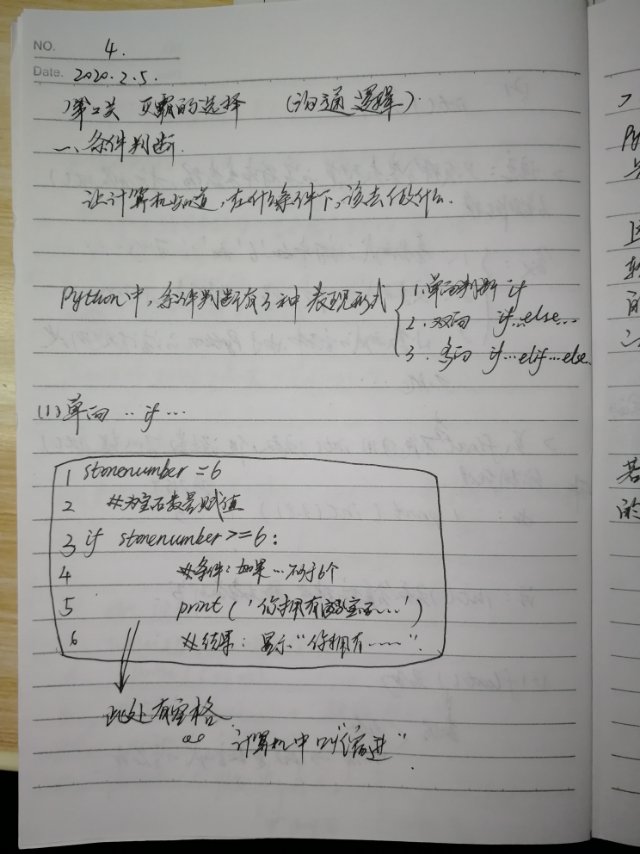 NO. 4.
Date. 2020.2.5.
第2关 灭霸的选择 (沟通逻辑)
一、条件判断
让计算机知道，在什么条件下，该去做什么.
Python中，条件判断有3种 表现形式
1. 单向判断 if
2. 双向 if…else…
3. 多向 if…elif…else
(1) 单向 .. if …
1 stonenumber = 6
2 #为宝石数量赋值
3 if stonenumber >= 6:
4 #条件：如果…不少于6个
5 print ('你拥有宝石……')
6 #结果：显示“你拥有……”
此处有空格
计算机中叫“缩进”